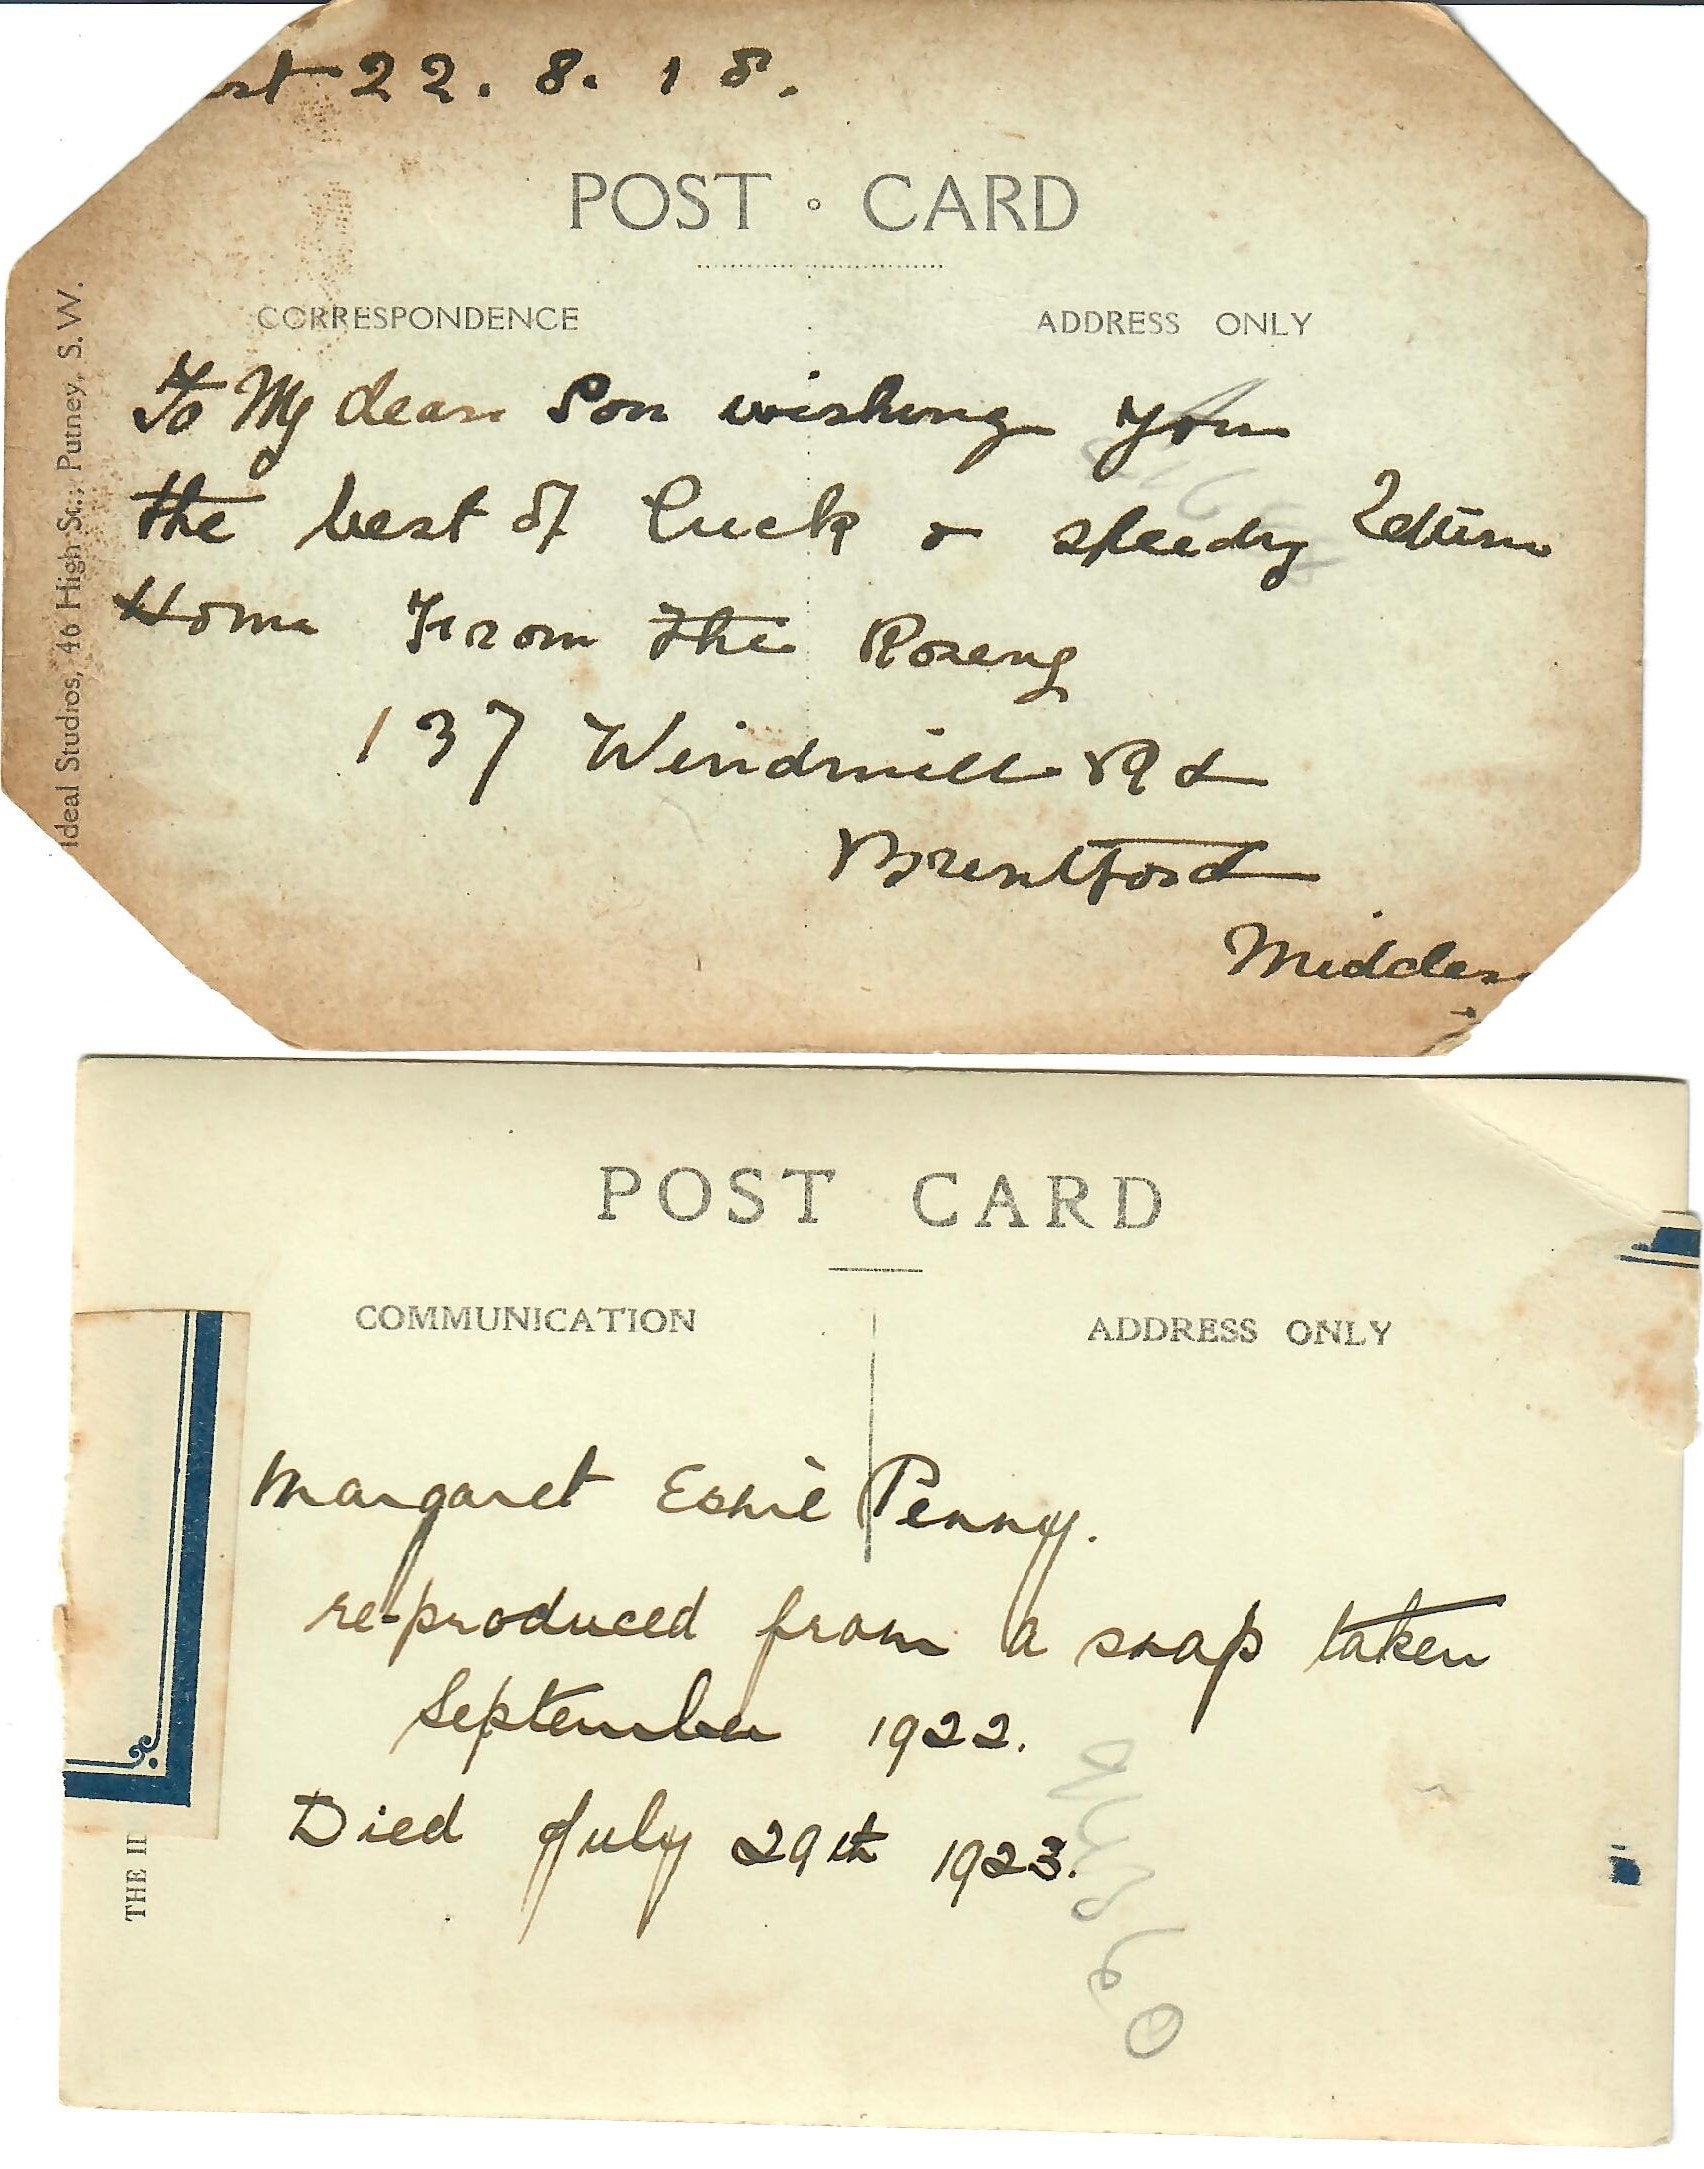 st 22. 8. 18.
POST CARD
CORRESPONDENCE
ADDRESS ONLY
Ideal Studios, 46 High St., Putney, S.W.
To My dear Son wishing you
the best of luck & speedy Return
Home From the
137 Windmill Rd
Brentford
Middlesx
POST CARD
COMMUNICATION
ADDRESS ONLY
Margaret Penny.
re-produced from a snap taken
September 1922.
Died July 29th 1923.
THE